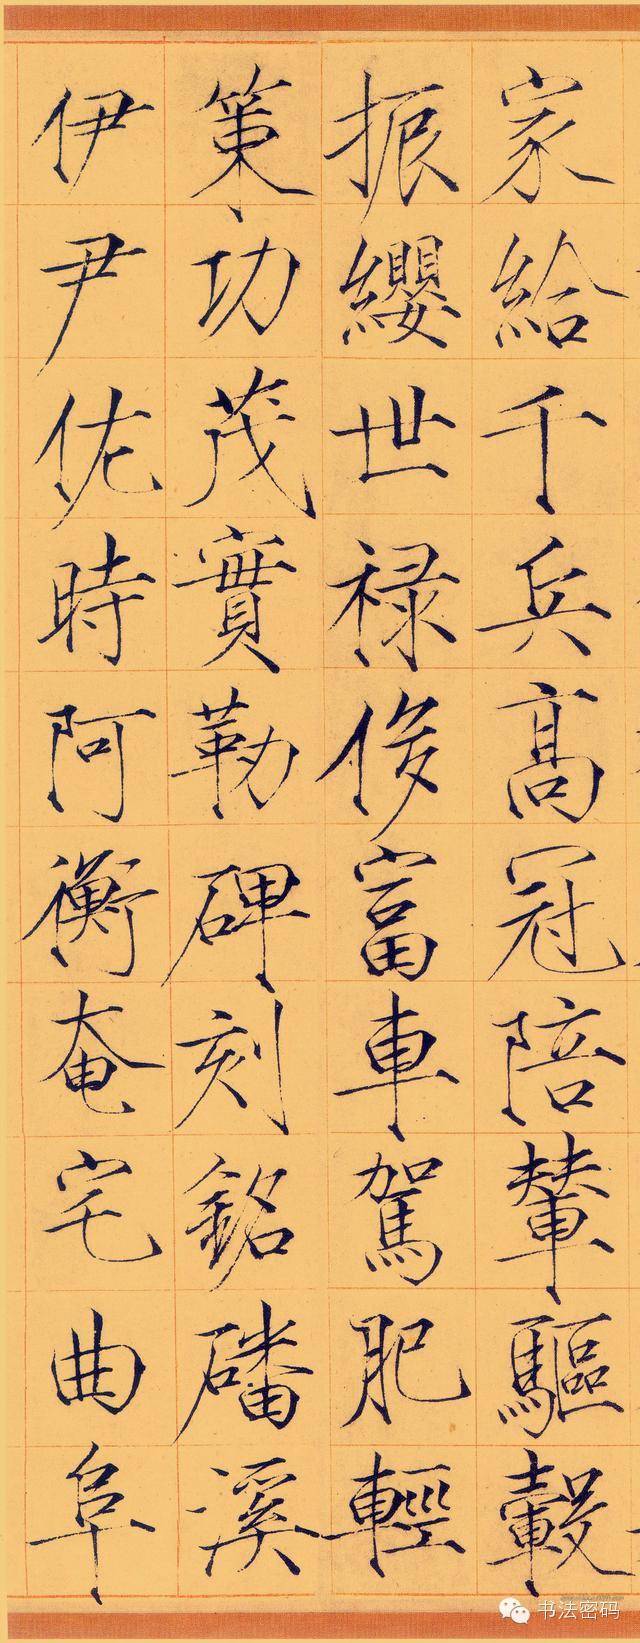 家給千兵高冠陪輦驅轂
振纓世禄侈富車駕肥輕
策功茂實勒碑刻銘磻溪
伊尹佐時阿衡奄宅曲阜
书法密码